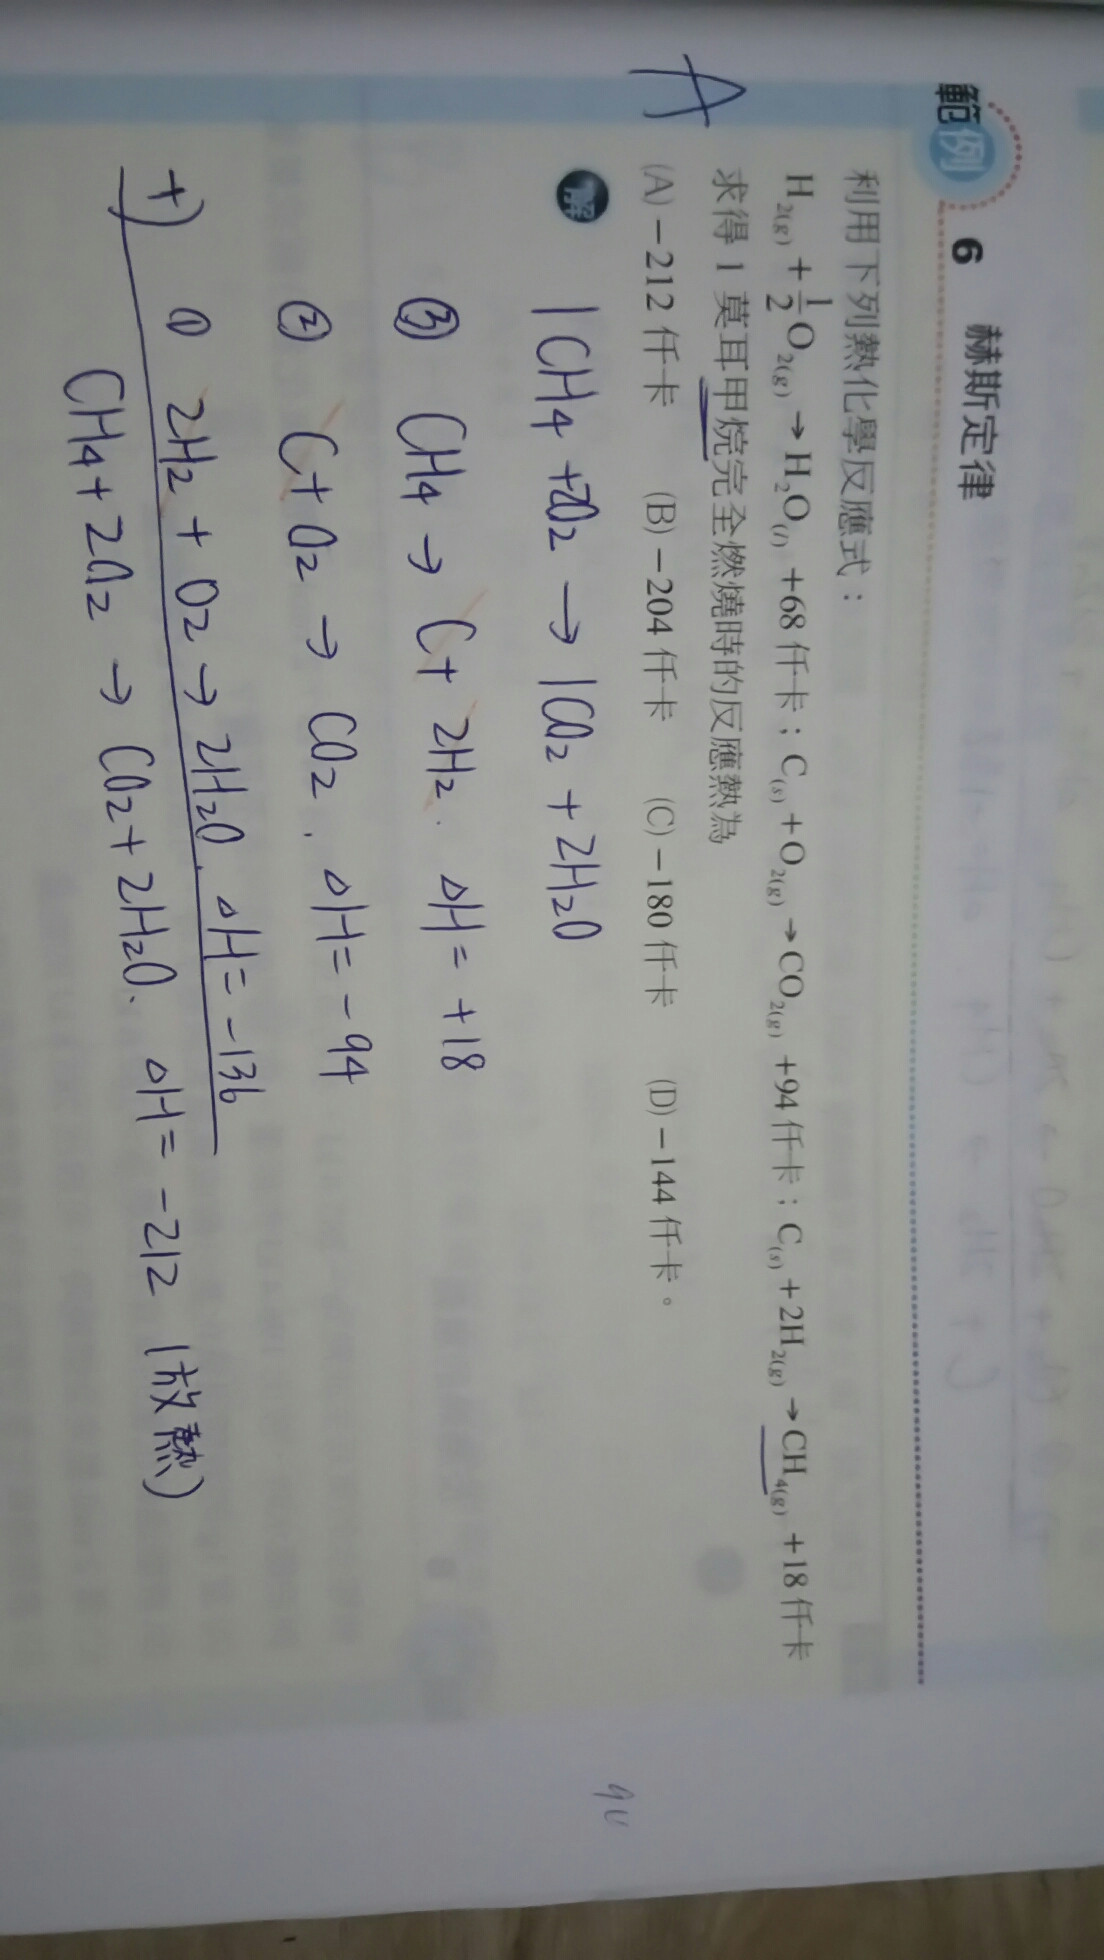 範例 6 赫斯定律
利用下列熱化學反應式：
H₂(g) + 1/2 O₂(g) → H₂O(l) +68 仟卡；C(s) + O₂(g) → CO₂(g) +94 仟卡；C(s) + 2H₂(g) → CH₄(g) +18 仟卡
求得 1 莫耳甲烷完全燃燒時的反應熱為
A (A) −212 仟卡 (B) −204 仟卡 (C) −180 仟卡 (D) −144 仟卡。
解 1CH4 + 2O2 → 1CO2 + 2H2O
③ CH4 → C + 2H2. ΔH = +18
② C + O2 → CO2, ΔH = −94
+) ① 2H2 + O2 → 2H2O, ΔH = −136
CH4 + 2O2 → CO2 + 2H2O、ΔH = −212 (放熱)